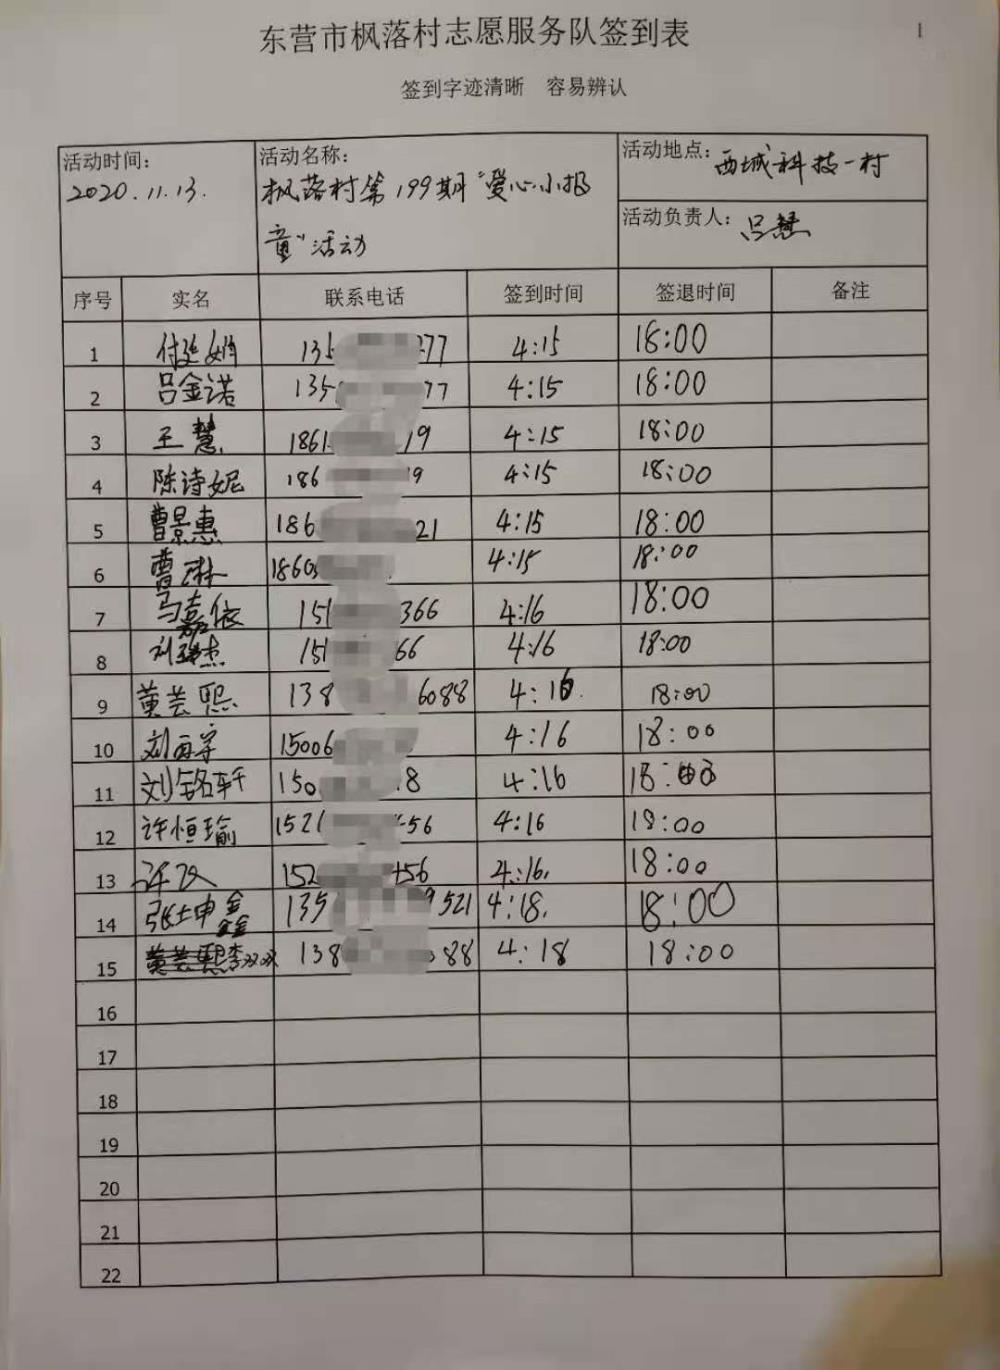 东营市枫落村志愿服务队签到表
1
签到字迹清晰 容易辨认
活动时间:
2020.11.13.
活动名称:
枫落村第199期"爱心小报
童"活动
活动地点: 西城科技一村
活动负责人: 吕慧
序号 实名 联系电话 签到时间 签退时间 备注
1 付延娟 135 277 4:15 18:00
2 吕金诺 135 77 4:15 18:00
3 王慧 1861 19 4:15 18:00
4 陈诗妮 186 9 4:15 18:00
5 曹景惠 186 21 4:15 18:00
6 曹琳 1860 4:15 18:00
7 马嘉依 151 366 4:16 18:00
8 刘 杰 151 66 4:16 18:00
9 黄芸熙 138 6088 4:16. 18:00
10 刘 宇 15006 4:16 18:00
11 刘铭轩 150 8 4:16 18:00
12 许恒瑜 1521 456 4:16 18:00
13 许 152 456 4:16. 18:00
14 张坤鑫 135 9521 4:18. 18:00
15 黄芸熙李双双 138 088 4:18 18:00
16
17
18
19
20
21
22